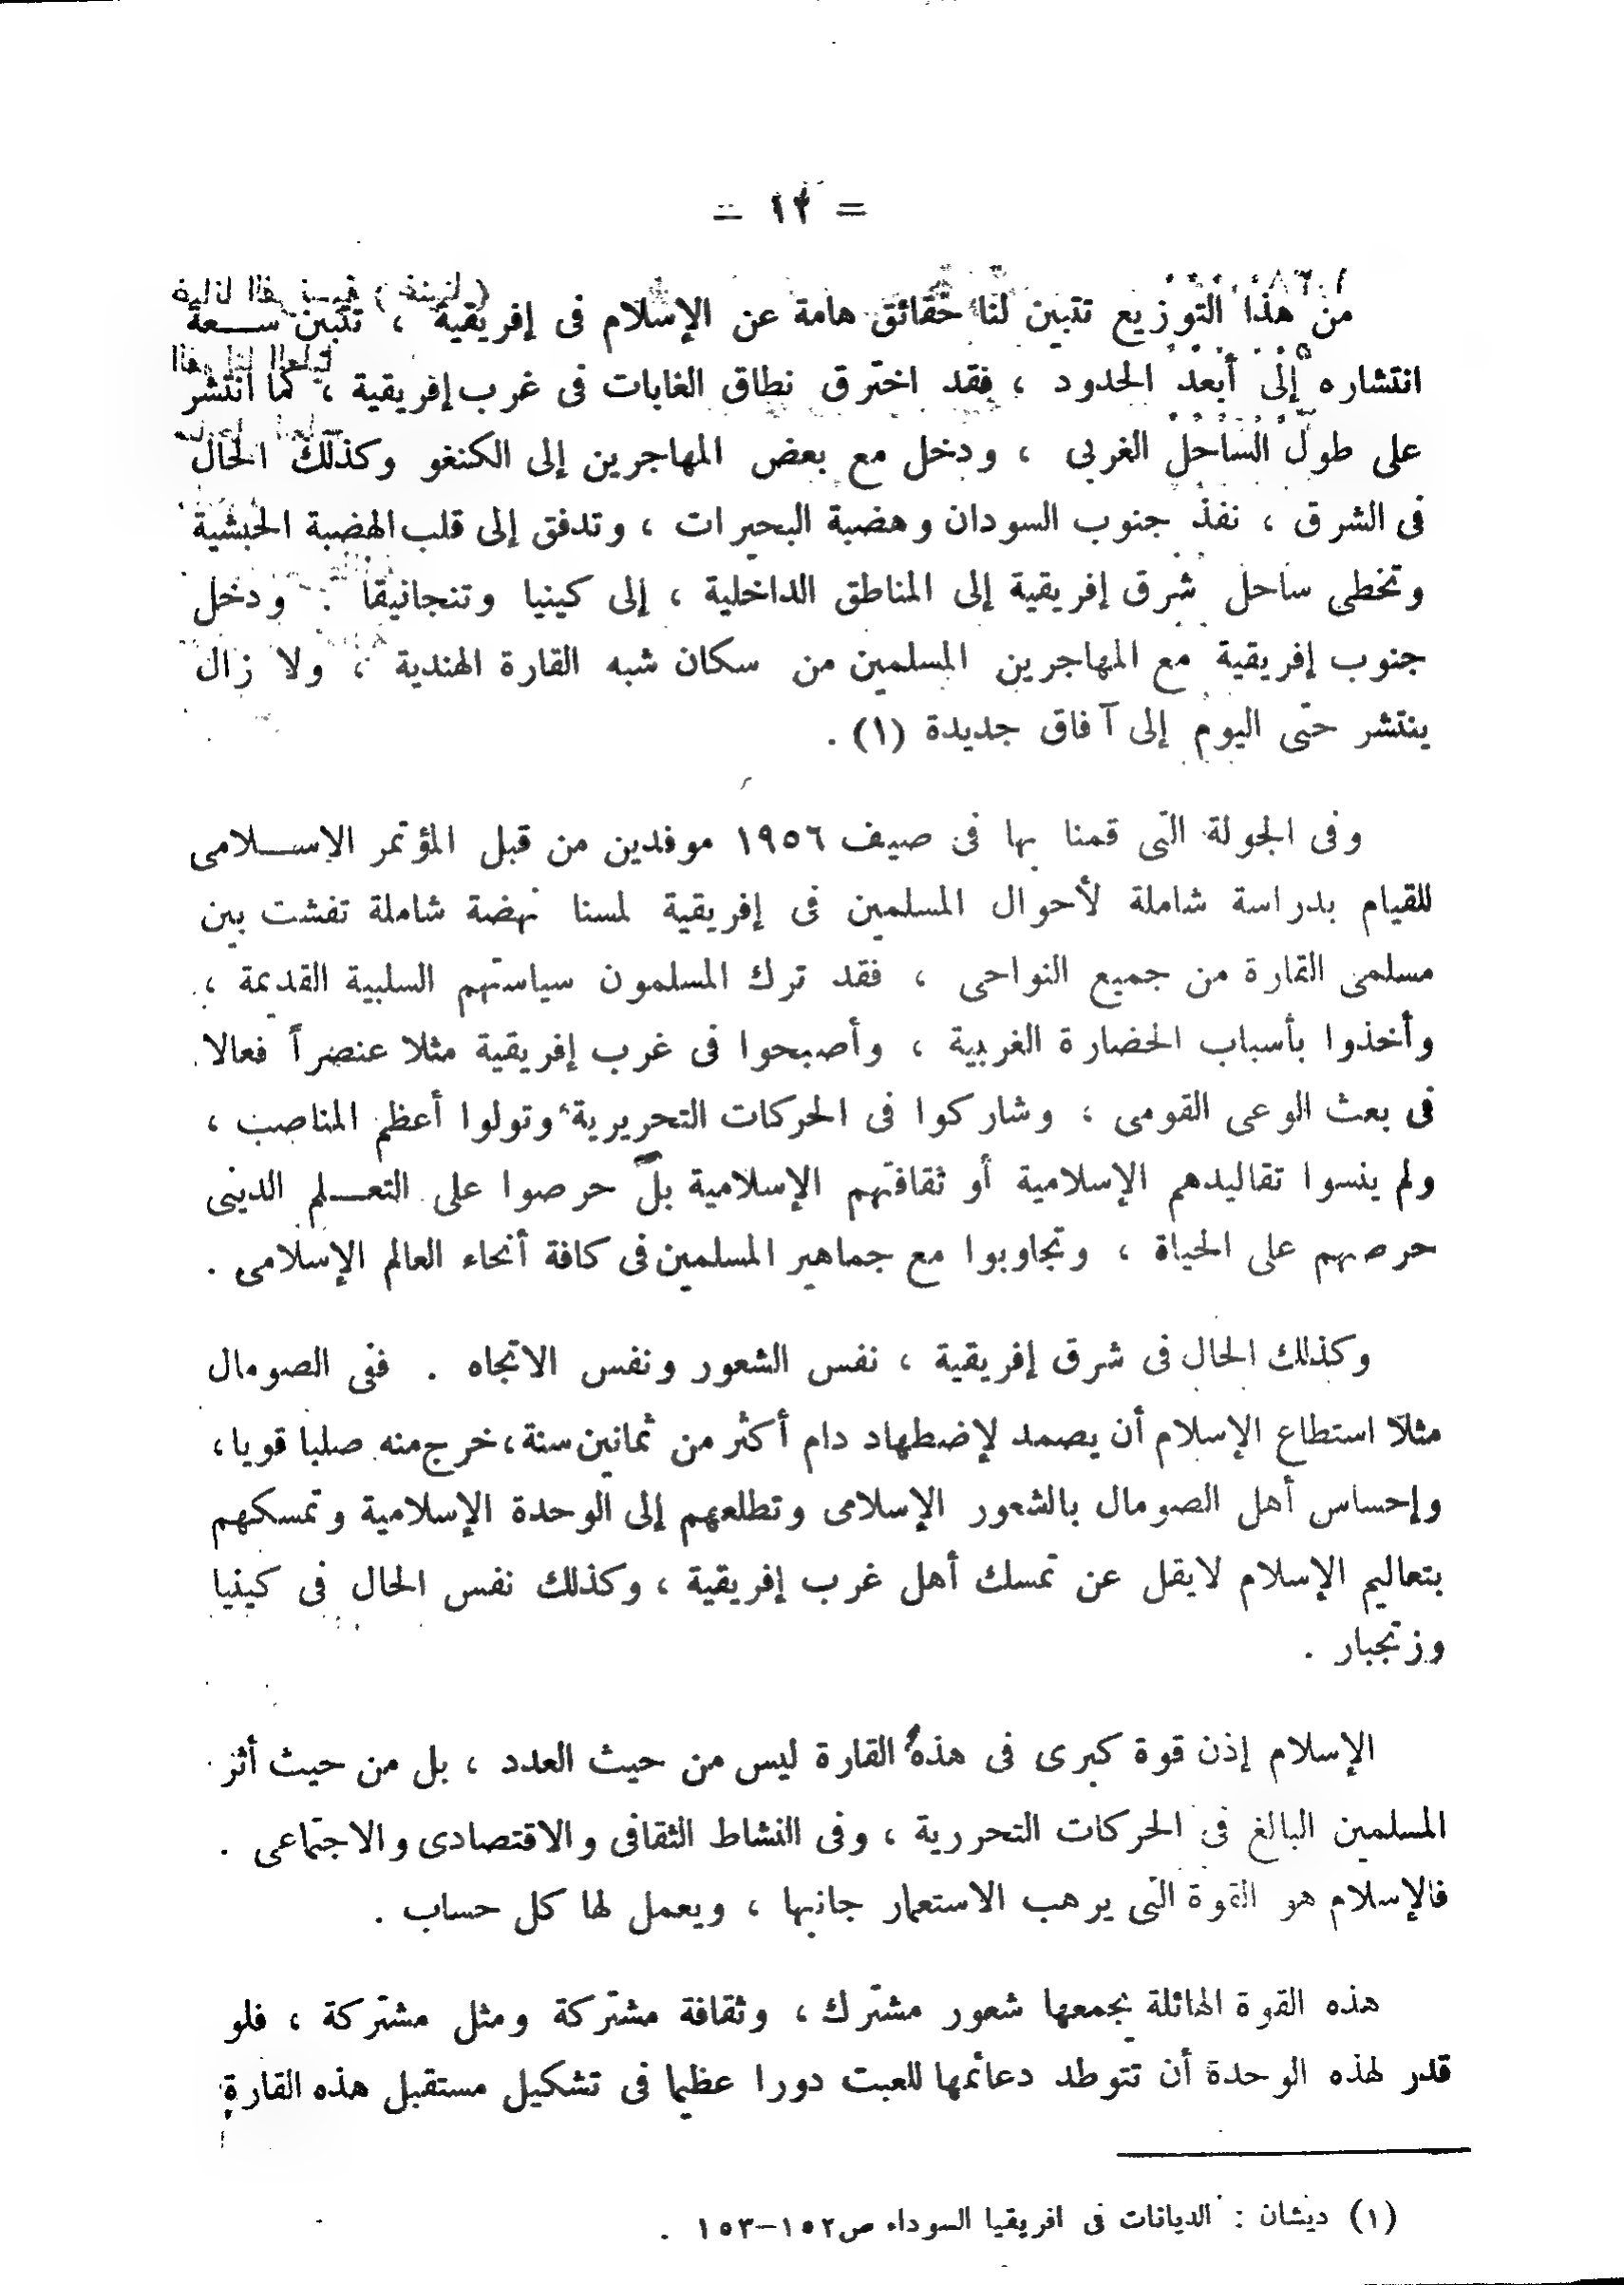 = ١٢ =
من هذا التوزيع تتبين لنا حقائق هامة عن الإسلام فى إفريقية ، تتبين سـعة
انتشاره إلى أبعد الحدود ، فقد اخترق نطاق الغابات فى غرب إفريقية ، كما انتشر
على طول الساحل الغربى ، ودخل مع بعض المهاجرين إلى الكنغو وكذلك الحال
فى الشرق ، نفذ جنوب السودان وهضبة البحيرات ، وتدفق إلى قلب الهضبة الحبشية
وتخطى ساحل شرق إفريقية إلى المناطق الداخلية ، إلى كينيا وتنجانيقا . ودخل
جنوب إفريقية مع المهاجرين المسلمين من سكان شبه القارة الهندية ، ولا زال
ينتشر حتى اليوم إلى آفاق جديدة (١) .
وفى الجولة التى قمنا بها فى صيف ١٩٥٦ موفدين من قبل المؤتمر الإسـلامى
للقيام بدراسة شاملة لأحوال المسلمين فى إفريقية لمسنا نهضة شاملة تفشت بين
مسلمى القارة من جميع النواحى ، فقد ترك المسلمون سياستهم السلبية القديمة ،
وأخذوا بأسباب الحضارة الغربية ، وأصبحوا فى غرب إفريقية مثلا عنصراً فعالا
فى بعث الوعى القومى ، وشاركوا فى الحركات التحريرية وتولوا أعظم المناصب ،
ولم ينسوا تقاليدهم الإسلامية أو ثقافتهم الإسلامية بل حرصوا على التعـلم الدينى
حرصهم على الحياة ، وتجاوبوا مع جماهير المسلمين فى كافة أنحاء العالم الإسلامى .
وكذلك الحال فى شرق إفريقية ، نفس الشعور ونفس الاتجاه . ففى الصومال
مثلا استطاع الإسلام أن يصمد لإضطهاد دام أكثر من ثمانين سنة ، خرج منه صلبا قويا ،
وإحساس أهل الصومال بالشعور الإسلامى وتطلعهم إلى الوحدة الإسلامية وتمسكهم
بتعاليم الإسلام لايقل عن تمسك أهل غرب إفريقية ، وكذلك نفس الحال فى كينيا
وزنجبار .
الإسلام إذن قوة كبرى فى هذه القارة ليس من حيث العدد ، بل من حيث أثر
المسلمين البالغ فى الحركات التحررية ، وفى النشاط الثقافى والاقتصادى والاجتماعى .
فالإسلام هو القوة التى يرهب الاستعمار جانبها ، ويعمل لها كل حساب .
هذه القوة الهائلة يجمعها شعور مشترك ، وثقافة مشتركة ومثل مشتركة ، فلو
قدر لهذه الوحدة أن تتوطد دعائمها للعبت دورا عظيما فى تشكيل مستقبل هذه القارة
(١) ديشان : الديانات فى افريقيا السوداء ص١٥٢–١٥٣ .